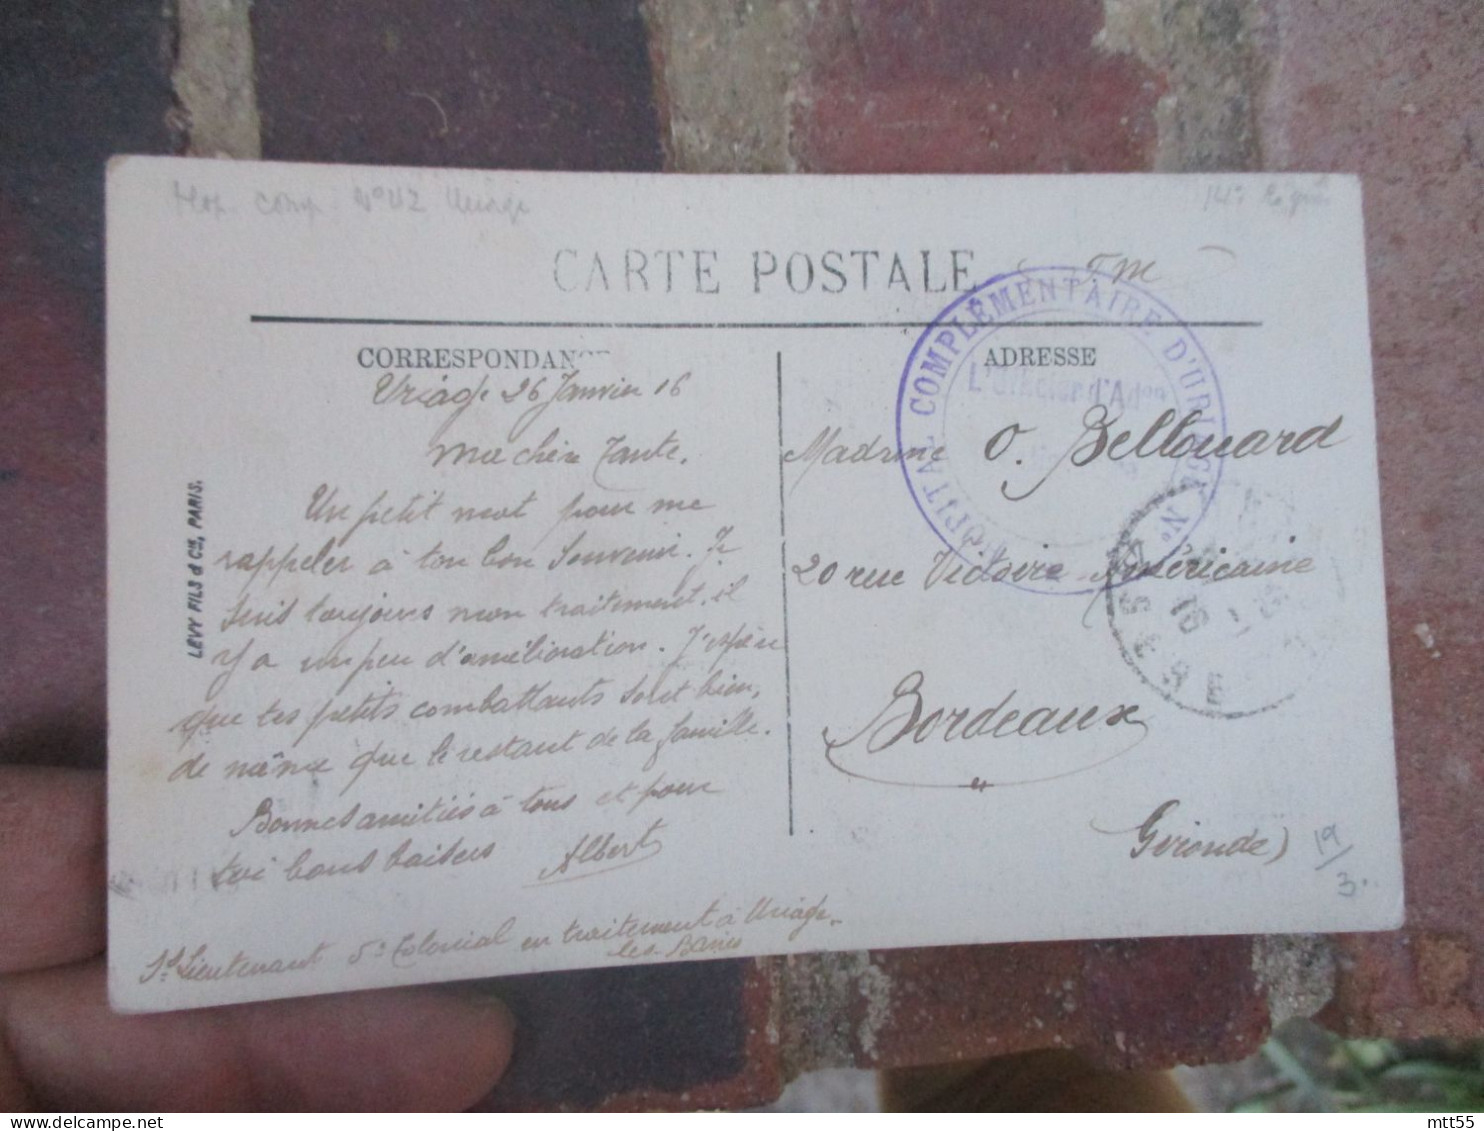 Hop. comp. N° 42 Uriage
14e Région
CARTE POSTALE
FM
CORRESPONDANCE
ADRESSE
HOPITAL COMPLÉMENTAIRE D'URIAGE N°
L'Officier d'Adon
LÉVY FILS & Cie, PARIS.
Uriage 26 Janvier 16
Ma chère Tante.
Un petit mot pour me
rappeler à ton bon souvenir. Je
suis toujours mon traitement. il
y a un peu d'amélioration. J'espère
que tes petits combattants sont bien,
de même que le restant de la famille.
Bonnes amitiés à tous et pour
toi bons baisers Albert
S/Lieutenant 5e Colonial en traitement à Uriage-
les-Bains
Madame O. Bellouard
20 rue Victoire-Américaine
Bordeaux
Gironde)
ISERE
16
19/3.
mtt55